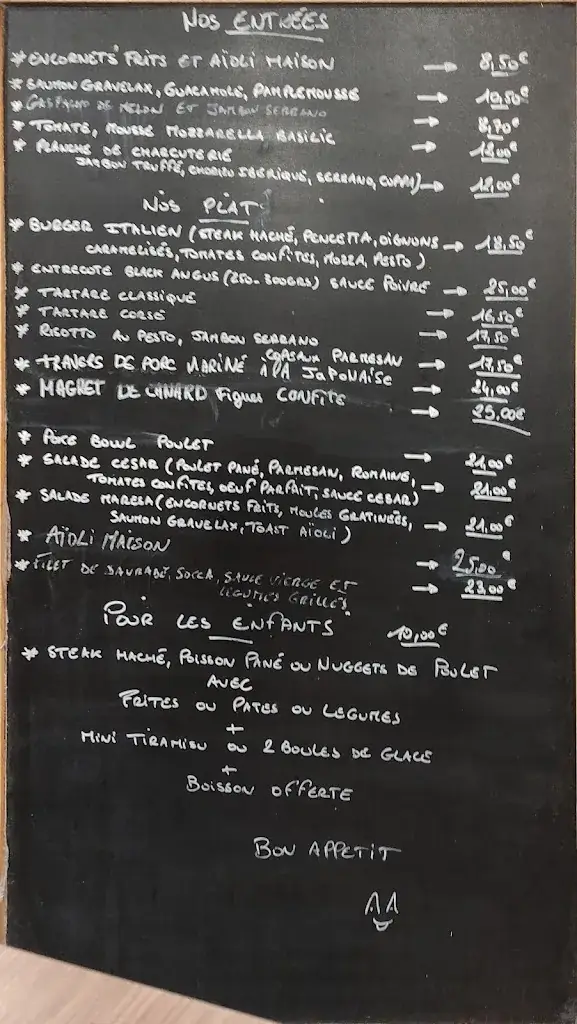 NOS ENTRÉES
* ENCORNETS FRITS ET AÏOLI MAISON → 8,50€
* SAUMON GRAVELAX, GUACAMOLE, PAMPLEMOUSSE → 10,50€
* GASPACHO DE MELON ET JAMBON SERRANO → 8,70€
* TOMATE, MOUSSE MOZZARELLA BASILIC → 12,00€
* PLANCHE DE CHARCUTERIE
JAMBON TRUFFÉ, CHORIZO IBERIQUE, SERRANO, COPPA) → 18,00€
NOS PLAT
* BURGER ITALIEN (STEAK HACHÉ, PENCETTA, OIGNONS → 18,50€
CARAMELISÉS, TOMATES CONFITES, MOZZA, PESTO)
* ENTRECOTE BLACK ANGUS (250-300GRS) SAUCE POIVRE → 25,00€
* TARTARE CLASSIQUE → 16,50€
* TARTARE CORSE → 17,50€
* RISOTTO AU PESTO, JAMBON SERRANO
COPEAUX PARMESAN → 17,50€
* TRAVERS DE PORC MARINÉ À LA JAPONAISE → 24,00€
* MAGRET DE CANARD Figues CONFITE → 25,00€
* POKE BOWL POULET → 21,00€
* SALADE CESAR (POULET PANÉ, PARMESAN, ROMAINE, → 21,00€
TOMATES CONFITES, OEUF PARFAIT, SAUCE CESAR)
* SALADE MARELA (ENCORNETS FRITS, MOULES GRATINÉES, → 21,00€
SAUMON GRAVELAX, TOAST AÏOLI)
* AÏOLI MAISON → 25,00€
* FILET DE DAURADE, SOCCA, SAUCE VIERGE ET → 23,00€
LEGUMES GRILLÉS
POUR LES ENFANTS 10,00€
* STEAK HACHÉ, POISSON PANÉ OU NUGGETS DE POULET
AVEC
FRITES OU PATES OU LEGUMES
+
MINI TIRAMISU OU 2 BOULES DE GLACE
+
BOISSON OFFERTE
BON APPETIT